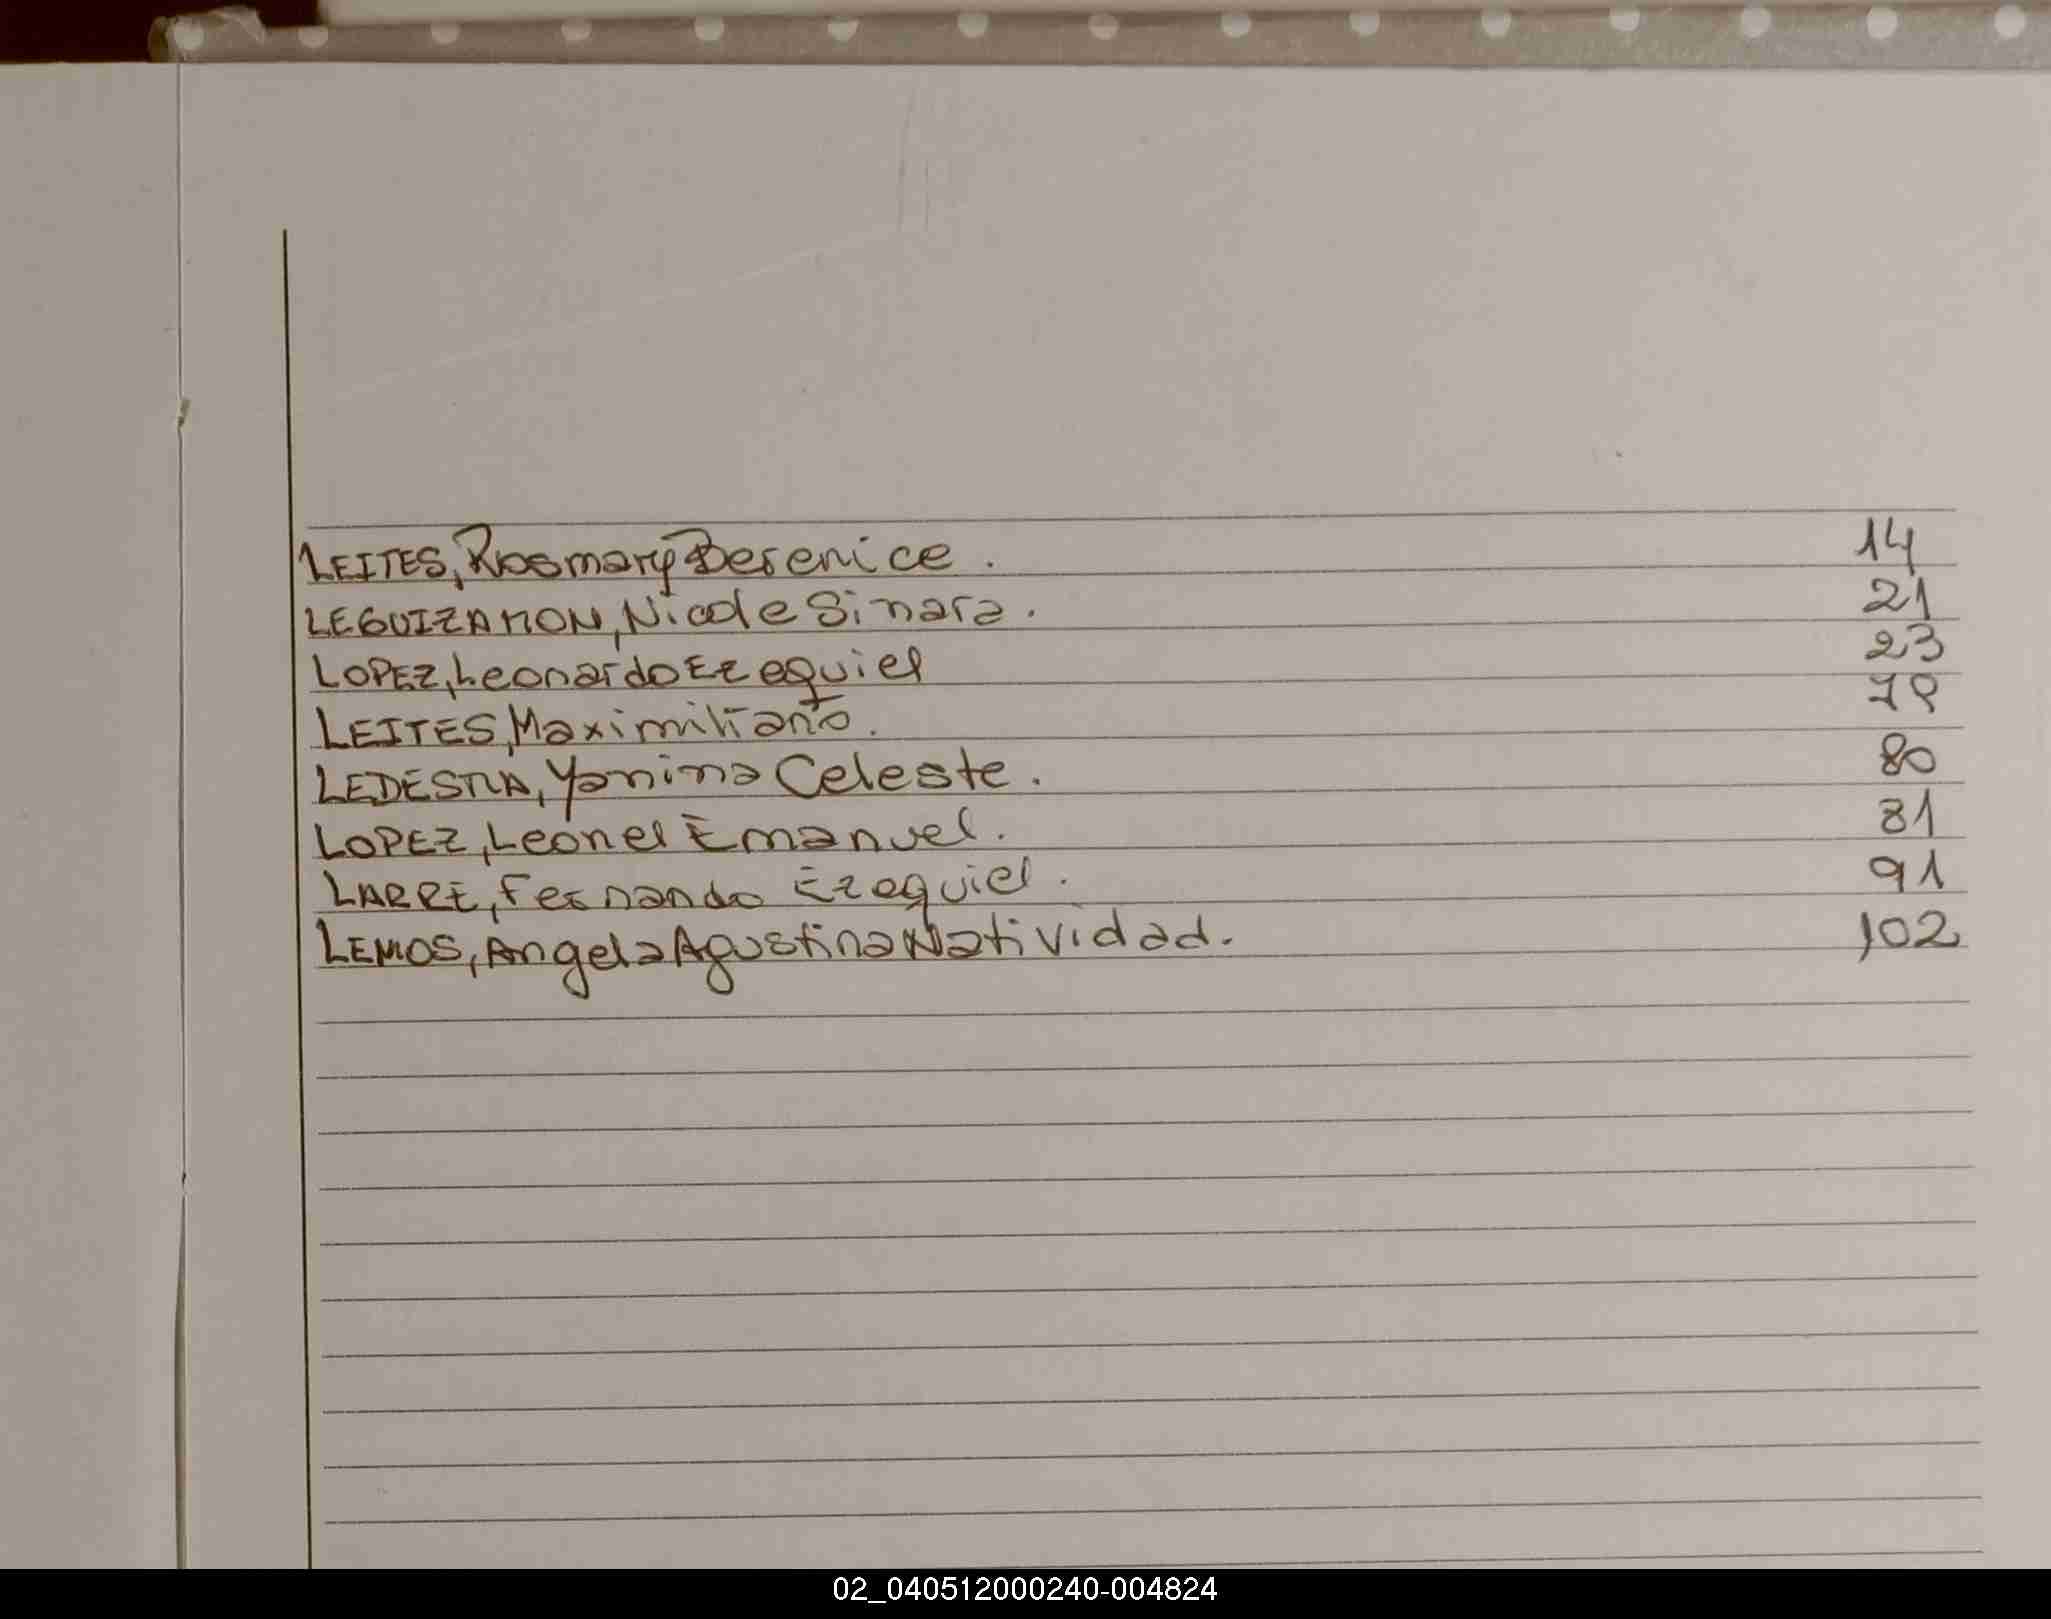 LEITES, Rosmary Berenice. 14
LEGUIZAMON, Nicole Sinara. 21
LOPEZ, Leonardo Ezequiel 23
LEITES, Maximiliano. 78
LEDESMA, Yanina Celeste. 80
LOPEZ, Leonel Emanuel. 81
LARRE, Fernando Ezequiel. 91
LEMOS, Angela Agustina Natividad. 102
02_040512000240-004824